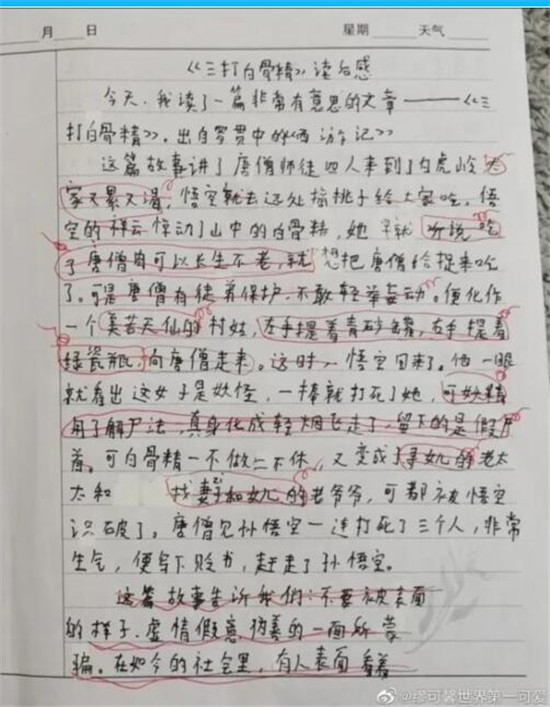 月 日 星期 天气
《三打白骨精》读后感
今天，我读了一篇非常有意思的文章——《三
打白骨精》，出自罗贯中的《西游记》
这篇故事讲了唐僧师徒四人来到了白虎岭，大
家又累又渴，悟空就去远处摘桃子给大家吃。悟
空的祥云惊动了山中的白骨精，她早就听说吃
了唐僧肉可以长生不老，就想把唐僧给捉来吃
了。可是唐僧有徒弟保护，不敢轻举妄动。便化作
一个美若天仙的村姑，左手提着青砂罐，右手提着
绿瓷瓶，向唐僧走来。这时，悟空回来了。他一眼
就看出这女子是妖怪，一棒就打死了她，可妖精
用了解尸法，真身化成轻烟飞走了，留下的是假尸
首。可白骨精一不做二不休，又变成了寻女儿的老太
太和 找妻子和女儿的老爷爷，可都被悟空
识破了。唐僧见孙悟空一连打死了三个人，非常
生气，便写下贬书，赶走了孙悟空。
这篇故事告诉我们：不要被表面
的样子，虚情假意，伪善的一面所蒙
骗。在如今的社会里，有人表面看着
@缪可馨世界第一可爱